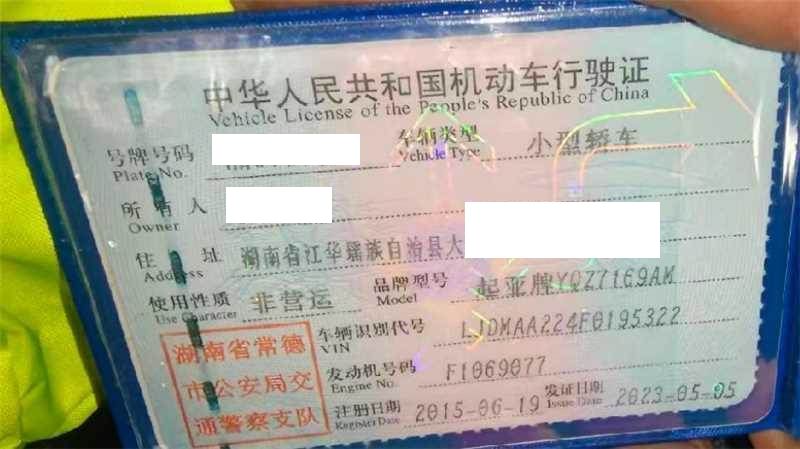 中华人民共和国机动车行驶证
Vehicle License of the People's Republic of China
号牌号码 车辆类型 小型轿车
Plate No. Vehicle Type
所有人
Owner
住址 湖南省江华瑶族自治县大
Address
使用性质 非营运 品牌型号 起亚牌YQZ7169AM
Use Character Model
车辆识别代号 LJDMAA224F0195322
VIN
发动机号码 F1069077
Engine No.
注册日期 2015-06-19 发证日期 2023-05-05
Register Date Issue Date
湖南省常德
市公安局交
通警察支队